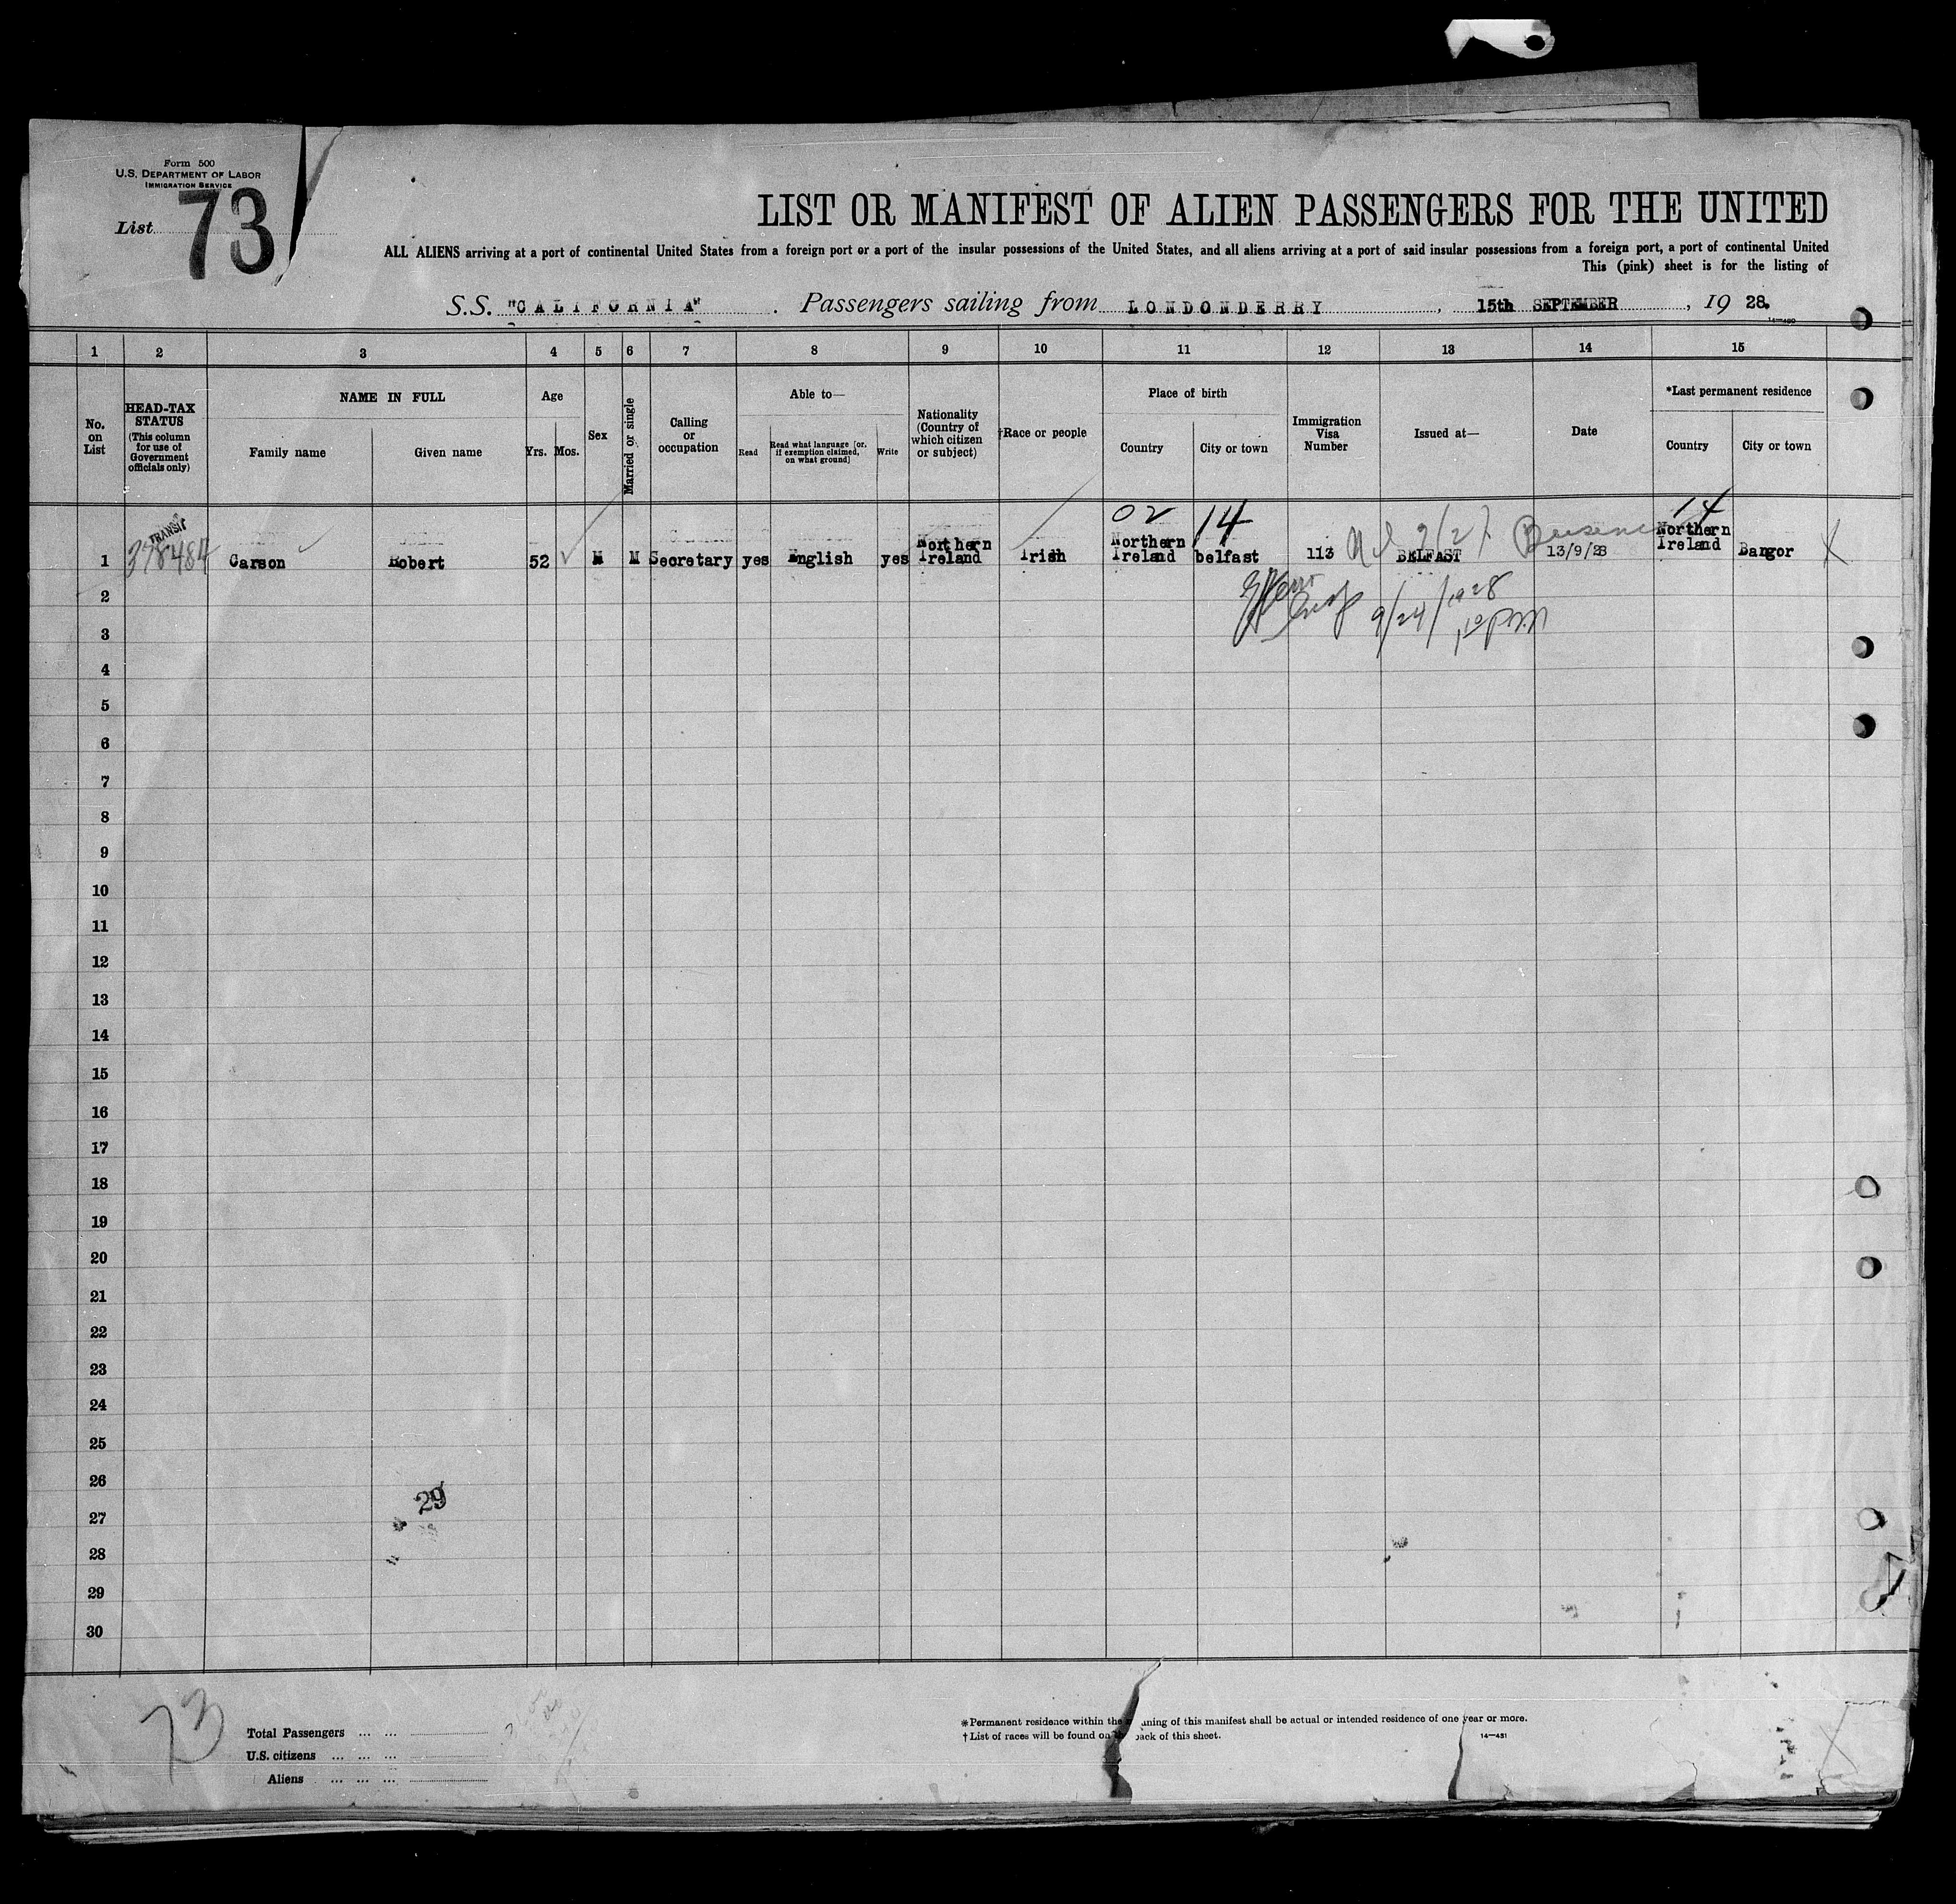 Form 500
U.S. DEPARTMENT OF LABOR
IMMIGRATION SERVICE
List 73
LIST OR MANIFEST OF ALIEN PASSENGERS FOR THE UNITED
ALL ALIENS arriving at a port of continental United States from a foreign port or a port of the insular possessions of the United States, and all aliens arriving at a port of said insular possessions from a foreign port, a port of continental United
This (pink) sheet is for the listing of
S.S. "CALIFORNIA" . Passengers sailing from LONDONDERRY , 15th SEPTEMBER , 19 28.
14—480
1 2 3 4 5 6 7 8 9 10 11 12 13 14 15
No. on List
HEAD-TAX STATUS
(This column for use of Government officials only)
NAME IN FULL
Family name Given name
Age
Yrs. Mos.
Sex
Married or single
Calling or occupation
Able to—
Read
Read what language [or, if exemption claimed, on what ground]
Write
Nationality (Country of which citizen or subject)
†Race or people
Place of birth
Country City or town
Immigration Visa Number
Issued at—
Date
*Last permanent residence
Country City or town
02 14 14
1 TRANSIT 398484 Carson Robert 52 M M Secretary yes English yes Northern Ireland Irish Northern Ireland belfast 113 BELFAST 13/9/28 Northern Ireland Bangor X
9/24/1928
2
3
4
5
6
7
8
9
10
11
12
13
14
15
16
17
18
19
20
21
22
23
24
25
26
29
27
28
29
30
73
Total Passengers ... ...
U.S. citizens ... ... ...
Aliens ... ... ...
*Permanent residence within the aning of this manifest shall be actual or intended residence of one year or more.
†List of races will be found on back of this sheet.
14—451